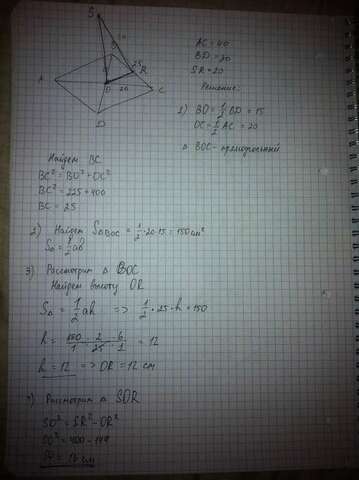 S
B
25
R
A
O
20
C
D
AC = 40
BD = 30
SR = 20
Решение:
1) BO = 1/2 BD = 15
OC = 1/2 AC = 20
Δ BOC - прямоугольный
Найдем BC
BC² = BO² + OC²
BC² = 225 + 400
BC = 25
2) Найдем S Δ BOC = 1/2 · 20 · 15 = 150 см²
S Δ = 1/2 ab
3) Рассмотрим Δ BOC
Найдем высоту OR
S Δ = 1/2 ah => 1/2 · 25 · h = 150
h = 150/1 · 2/25 · 6/1 = 12
h = 12 => OR = 12 см
4) Рассмотрим Δ SOR
SO² = SR² - OR²
SO² = 400 - 144
SO = 16 см